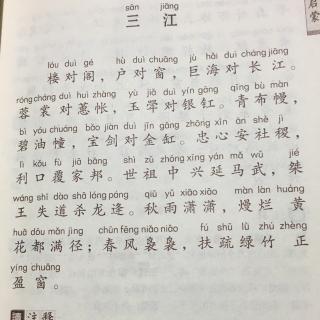 启蒙
sān jiāng
三 江
lóu duì gé hù duì chuāng jù hǎi duì cháng jiāng
楼对阁，户对窗，巨海对长江。
róng cháng duì huì zhàng yù jiǎ duì yín gāng qīng bù màn
蓉裳对蕙帐，玉斝对银釭。青布幔，
bì yóu chuáng bǎo jiàn duì jīn gāng zhōng xīn ān shè jì
碧油幢，宝剑对金缸。忠心安社稷，
lì kǒu fù jiā bāng shì zǔ zhōng xīng yán mǎ wǔ jié
利口覆家邦。世祖中兴延马武，桀
wáng shī dào shā lóng páng qiū yǔ xiāo xiāo màn làn huáng
王失道杀龙逄。秋雨潇潇，熳烂黄
huā dōu mǎn jìng chūn fēng niǎo niǎo fú shū lǜ zhú zhèng
花都满径；春风袅袅，扶疏绿竹正
yíng chuāng
盈窗。
注释